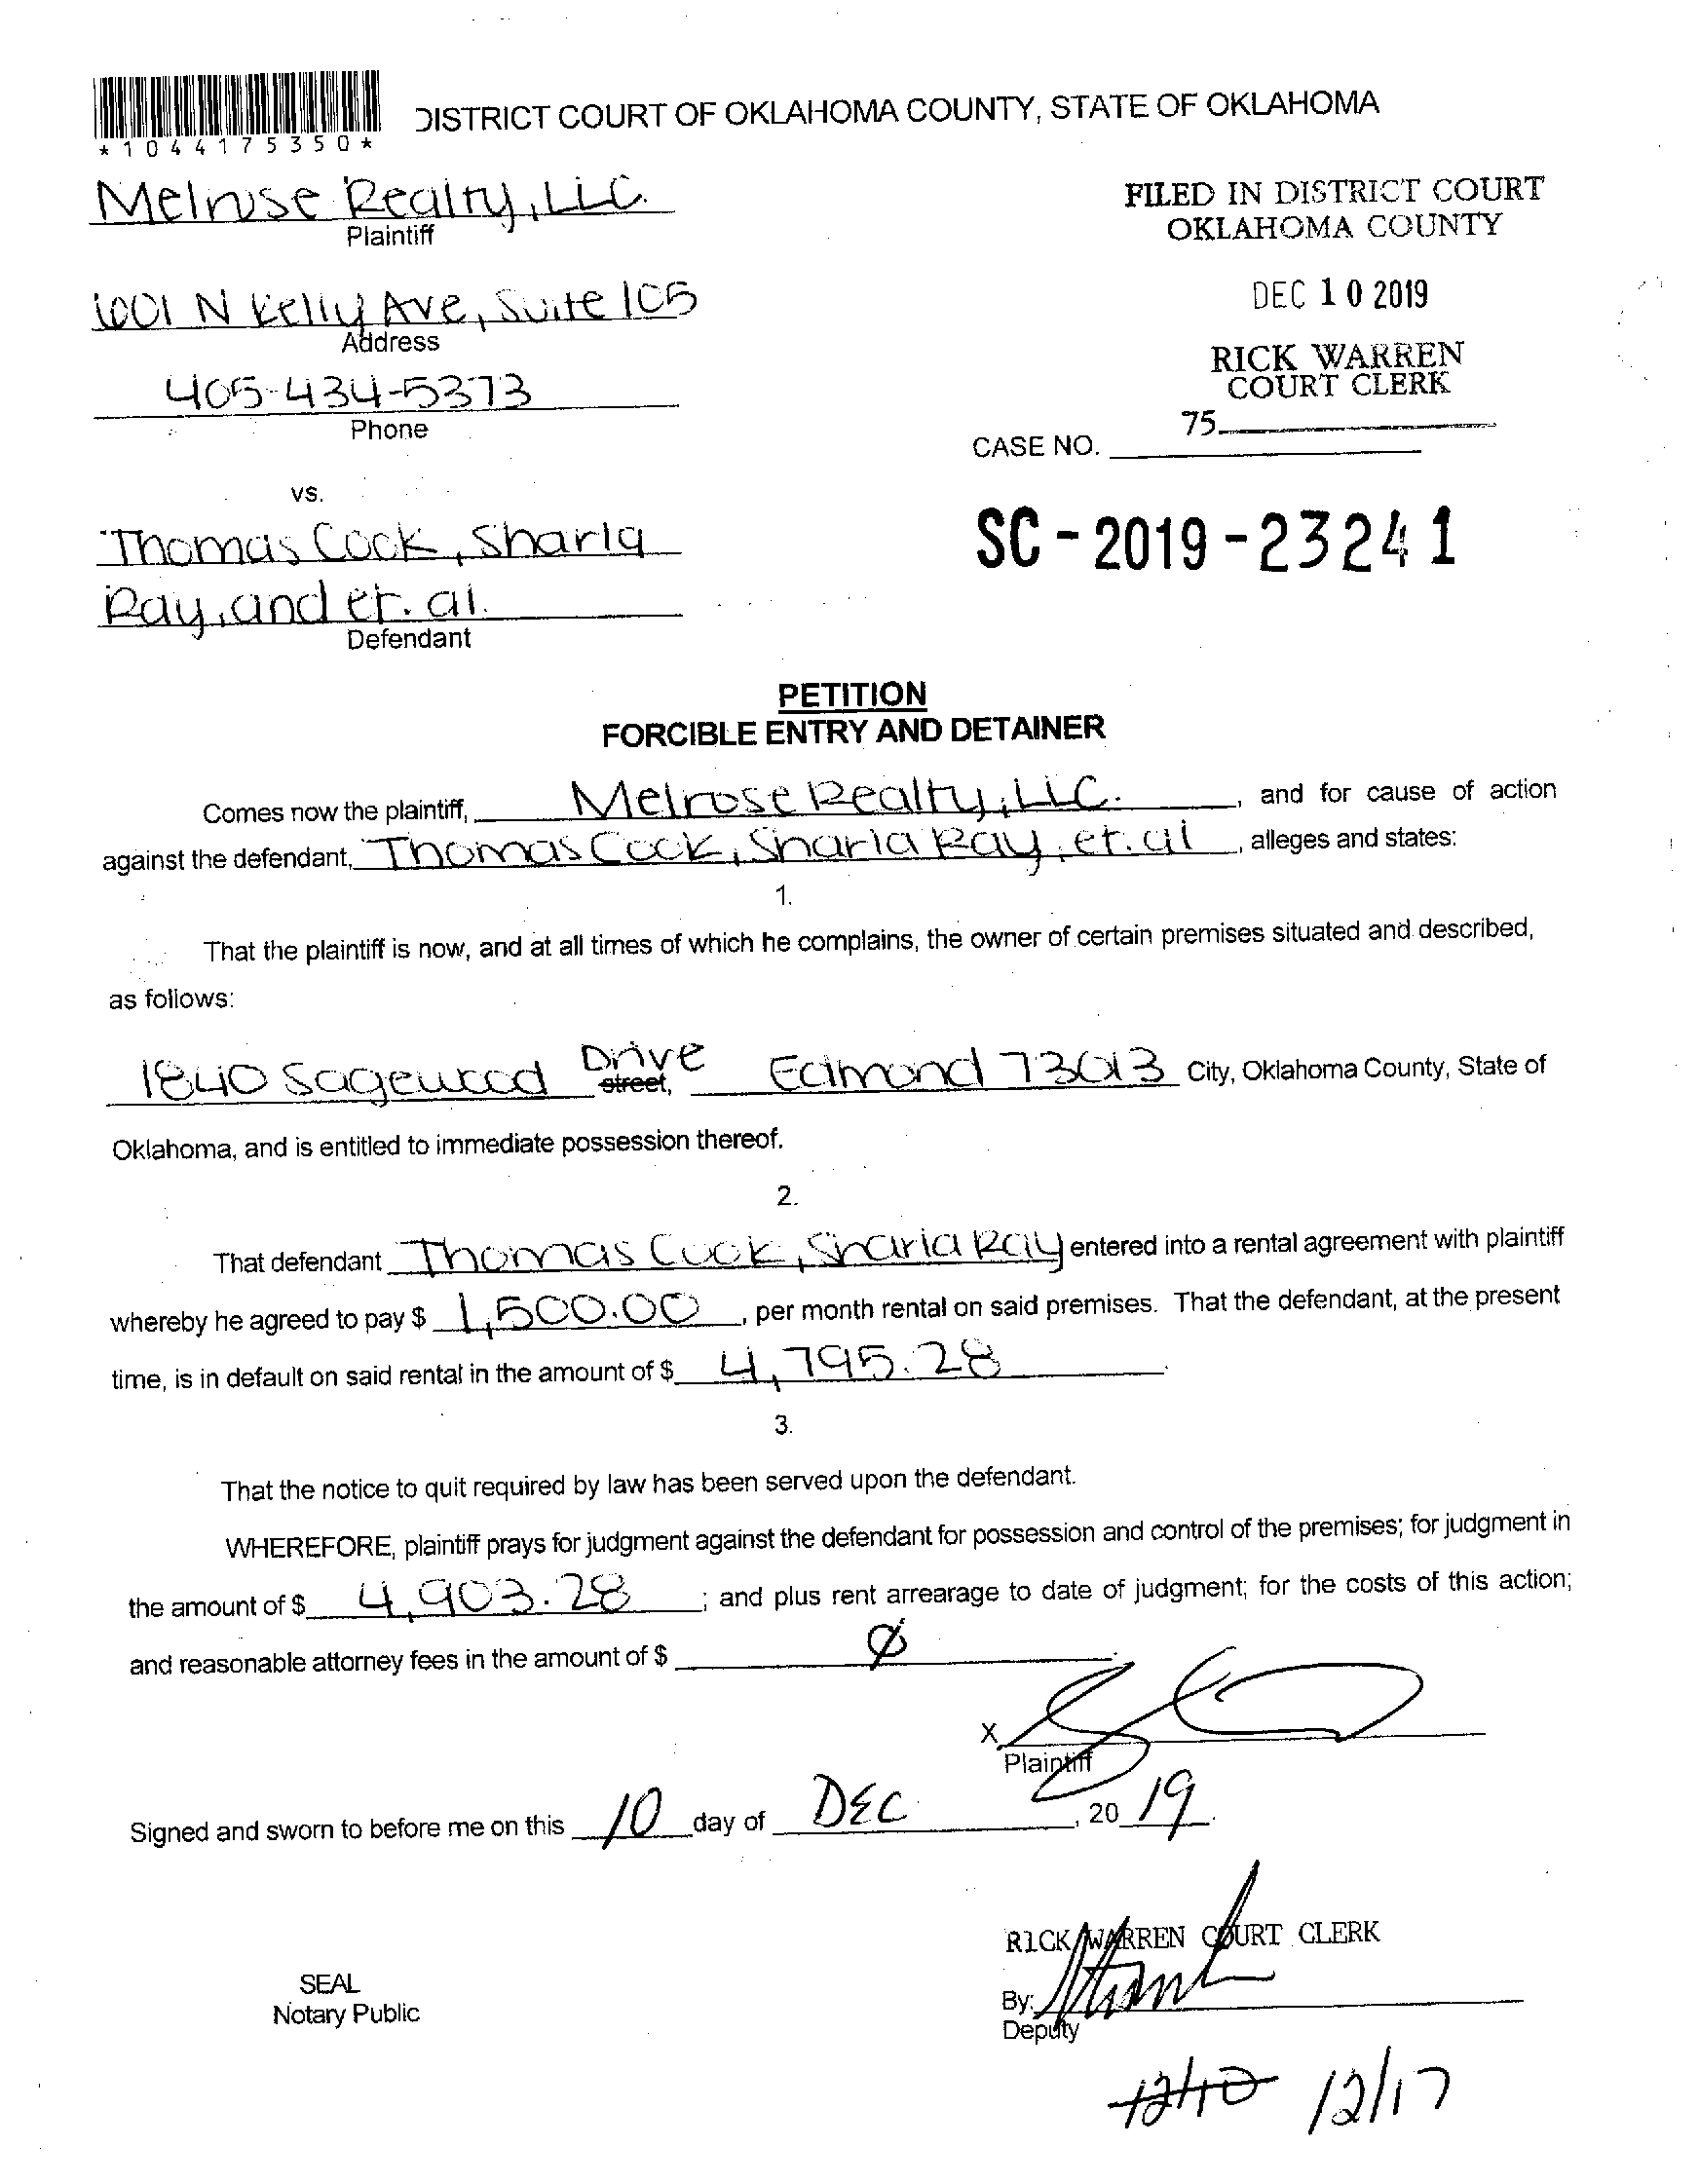 *1044175350*
DISTRICT COURT OF OKLAHOMA COUNTY, STATE OF OKLAHOMA
Melrose Realty, LLC.
Plaintiff
FILED IN DISTRICT COURT
OKLAHOMA COUNTY
1001 N Kelly Ave, Suite 105
Address
DEC 10 2019
405-434-5373
Phone
RICK WARREN
COURT CLERK
75
CASE NO.
vs.
SC - 2019 - 23241
Thomas Cook, Sharla
Ray, and et. al.
Defendant
PETITION
FORCIBLE ENTRY AND DETAINER
Comes now the plaintiff, Melrose Realty, LLC. , and for cause of action
against the defendant, Thomas Cook, Sharla Ray, et. al , alleges and states:
1.
That the plaintiff is now, and at all times of which he complains, the owner of certain premises situated and described,
as follows:
1840 Sagewood Drive street, Edmond 73013 City, Oklahoma County, State of
Oklahoma, and is entitled to immediate possession thereof.
2.
That defendant Thomas Cook, Sharla Ray entered into a rental agreement with plaintiff
whereby he agreed to pay $ 1,500.00 , per month rental on said premises. That the defendant, at the present
time, is in default on said rental in the amount of $ 4,795.28 .
3.
That the notice to quit required by law has been served upon the defendant.
WHEREFORE, plaintiff prays for judgment against the defendant for possession and control of the premises; for judgment in
the amount of $ 4,903.28 ; and plus rent arrearage to date of judgment; for the costs of this action;
and reasonable attorney fees in the amount of $ Ø .
X
Plaintiff
Signed and sworn to before me on this 10 day of DEC , 20 19 .
RICK WARREN COURT CLERK
SEAL
Notary Public
By:
Deputy
12/10 12/17